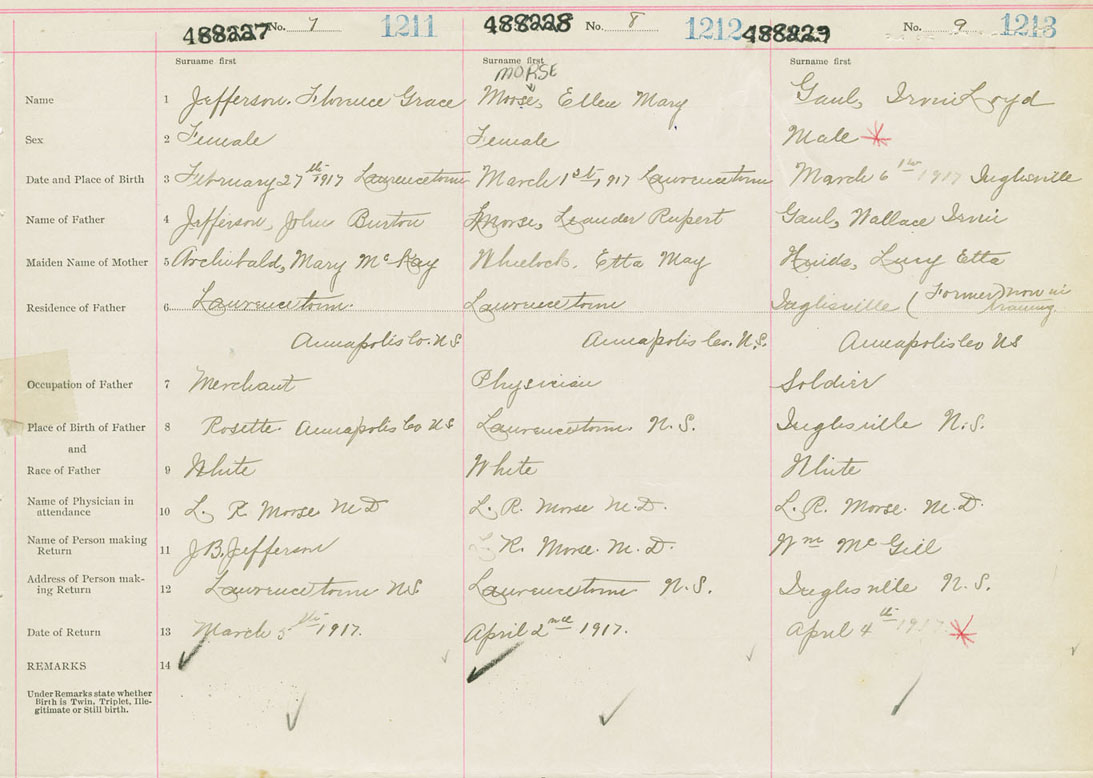 488227 No. 7 1211 488228 No. 8 1212 488229 No. 9 1213
Surname first Surname first Surname first
MORSE
Name 1 Jefferson. Florence Grace Morse, Ellen Mary Gaul, Irvin Loyd
Sex 2 Female Female Male
Date and Place of Birth 3 February 27th 1917 Lawrencetown March 1st 1917 Lawrencetown March 6 1917 Inglisville
Name of Father 4 Jefferson, John Burton Morse, Leander Rupert Gaul, Wallace Irvin
Maiden Name of Mother 5 Archibald, Mary McKay Wheelock. Etta May Lucy Etta
Residence of Father 6 Lawrencetown. Lawrencetown Inglisville (Former) now in training
Annapolis Co. N.S. Annapolis Co. N.S. Annapolis Co N S
Occupation of Father 7 Merchant Physician Soldier
Place of Birth of Father 8 Rosette Annapolis Co N S Lawrencetown N.S. Inglisville N.S.
and
Race of Father 9 White White White
Name of Physician in
attendance 10 L. R. Morse M D L. R. Morse M.D. L. R. Morse. M.D.
Name of Person making
Return 11 J B. Jefferson L. R. Morse. M.D. Wm McGill
Address of Person mak-
ing Return 12 Lawrencetown N S. Lawrencetown N.S. Inglisville N.S.
Date of Return 13 March 5th 1917. April 2nd 1917. April 4th 1917
REMARKS 14
Under Remarks state whether
Birth is Twin, Triplet, Ille-
gitimate or Still birth.